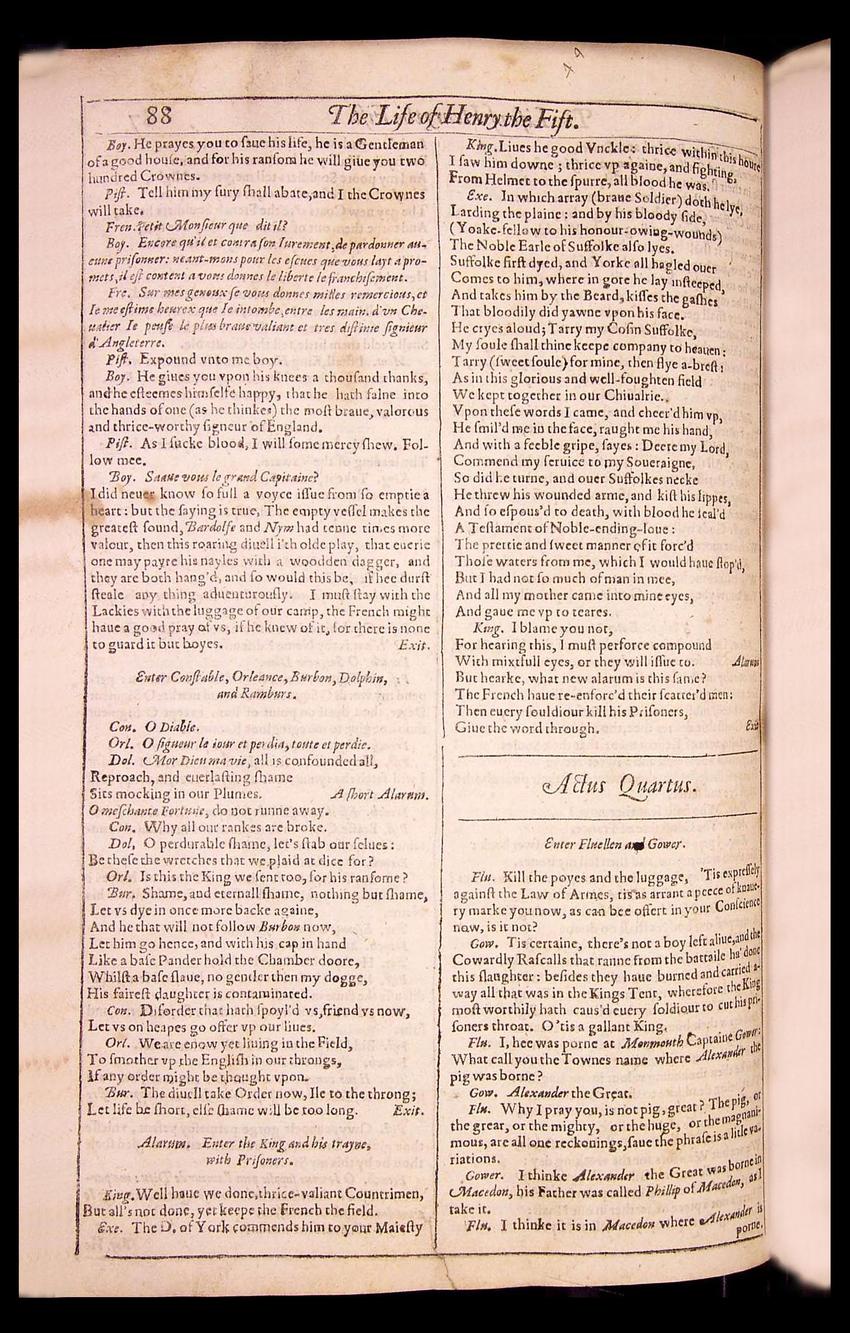 88
The Life of Henry the Fift.
Boy. He prayes you to ſaue his life, he is a Gentleman
of a good houſe, and for his ranſom he will giue you two
hundred Crownes.
Piſt. Tell him my fury ſhall abate, and I the Crownes
will take.
Fren. Petit Monſieur que dit il?
Boy. Encore qu'il et contra ſon Iurement, de pardonner au-
cune priſonner: neant-mons pour les eſcues que vous layt a pro-
mets, il eſt content a vous donnes le liberte le franchiſement.
Fre. Sur mes genoux ſe vous donnes milles remercious, et
Ie me eſtime heurex que Ie intombe, entre les main. d'vn Che-
ualier Ie peuſe le plus braue valiant et tres diſtinie ſignieur
d'Angleterre.
Piſt. Expound vnto me boy.
Boy. He giues you vpon his knees a thouſand thanks,
and he eſteemes himſelfe happy, that he hath falne into
the hands of one (as he thinkes) the moſt braue, valorous
and thrice-worthy ſigneur of England.
Piſt. As I ſucke blood, I will ſome mercy ſhew. Fol-
low mee.
Boy. Saaue vous le grand Capitaine?
I did neuer know ſo full a voyce iſſue from ſo emptie a
heart: but the ſaying is true, The empty veſſel makes the
greateſt ſound, Bardolfe and Nym had tenne times more
valour, then this roaring diuell i'th olde play, that euerie
one may payre his nayles with a woodden dagger, and
they are both hang'd, and ſo would this be, if hee durſt
ſteale any thing aduenturouſly. I muſt ſtay with the
Lackies with the luggage of our camp, the French might
haue a good pray of vs, if he knew of it, for there is none
to guard it but boyes. Exit.
Enter Conſtable, Orleance, Burbon, Dolphin,
and Ramburs.
Con. O Diable.
Orl. O ſigueur le iour et perdia, toute et perdie.
Dol. Mor Dieu ma vie, all is confounded all,
Reproach, and euerlaſting ſhame
Sits mocking in our Plumes. A ſhort Alarum.
O meſchante Fortune, do not runne away.
Con. Why all our rankes are broke.
Dol, O perdurable ſhame, let's ſtab our ſelues:
Be theſe the wretches that we plaid at dice for?
Orl. Is this the King we ſent too, for his ranſome?
Bur. Shame, and eternall ſhame, nothing but ſhame,
Let vs dye in once more backe againe,
And he that will not follow Burbon now,
Let him go hence, and with his cap in hand
Like a baſe Pander hold the Chamber doore,
Whilſt a baſe ſlaue, no gender then my dogge,
His faireſt daughter is contaminated.
Con. Diſorder that hath ſpoyl'd vs, friend vs now,
Let vs on heapes go offer vp our liues.
Orl. We are enow yet liuing in the Field,
To ſmother vp the Engliſh in our throngs,
If any order might be thought vpon.
Bur. The diuell take Order now, Ile to the throng;
Let life be ſhort, elſe ſhame will be too long. Exit.
Alarum. Enter the King and his trayne,
with Priſoners.
King. Well haue we done, thrice-valiant Countrimen,
But all's not done, yet keepe the French the field.
Exe. The D. of York commends him to your Maieſty
King. Liues he good Vnckle: thrice within this houre
I ſaw him downe; thrice vp againe, and fighting,
From Helmet to the ſpurre, all blood he was.
Exe. In which array (braue Soldier) doth he lye,
Larding the plaine: and by his bloody ſide,
(Yoake-fellow to his honour-owing-wounds)
The Noble Earle of Suffolke alſo lyes.
Suffolke firſt dyed, and Yorke all hagled ouer
Comes to him, where in gore he lay inſteeped,
And takes him by the Beard, kiſſes the gaſhes
That bloodily did yawne vpon his face.
He cryes aloud; Tarry my Coſin Suffolke,
My ſoule ſhall thine keepe company to heauen:
Tarry (ſweet ſoule) for mine, then flye a-breſt:
As in this glorious and well-foughten field
We kept together in our Chiualrie.
Vpon theſe words I came, and cheer'd him vp,
He ſmil'd me in the face, raught me his hand,
And with a feeble gripe, ſayes: Deere my Lord,
Commend my ſeruice to my Soueraigne,
So did he turne, and ouer Suffolkes necke
He threw his wounded arme, and kiſt his lippes,
And ſo eſpous'd to death, with blood he ſeal'd
A Teſtament of Noble-ending-loue:
The prettie and ſweet manner of it forc'd
Thoſe waters from me, which I would haue ſtop'd,
But I had not ſo much of man in mee,
And all my mother came into mine eyes,
And gaue me vp to teares.
King. I blame you not,
For hearing this, I muſt perforce compound
With mixtfull eyes, or they will iſſue to. Alarum
But hearke, what new alarum is this ſame?
The French haue re-enforc'd their ſcatter'd men:
Then euery ſouldiour kill his Priſoners,
Giue the word through. Exit
Actus Quartus.
Enter Fluellen and Gower.
Flu. Kill the poyes and the luggage, 'Tis expreſſely
againſt the Law of Armes, tis as arrant a peece of knaue-
ry marke you now, as can bee offert in your Conſcience
now, is it not?
Gow. Tis certaine, there's not a boy left aliue, and the
Cowardly Raſcalls that ranne from the battaile ha' done
this ſlaughter: beſides they haue burned and carried a-
way all that was in the Kings Tent, wherefore the King
moſt worthily hath caus'd euery ſoldiour to cut his pri-
ſoners throat. O 'tis a gallant King.
Flu. I, hee was porne at Monmouth Captaine Gower:
What call you the Townes name where Alexander the
pig was borne?
Gow. Alexander the Great.
Flu. Why I pray you, is not pig, great? The pig, or
the great, or the mighty, or the huge, or the magnani-
mous, are all one reckonings, ſaue the phraſe is a litle va-
riations.
Gower. I thinke Alexander the Great was borne in
Macedon, his Father was called Phillip of Macedon, as I
take it.
Flu. I thinke it is in Macedon where Alexander is
porne.